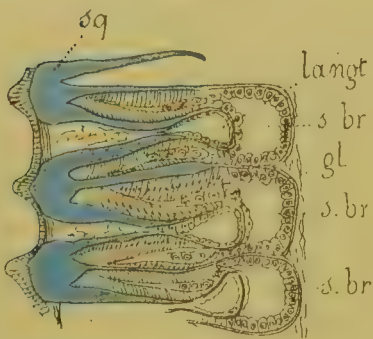 sq
langt
s br
gl
s. br
s. br